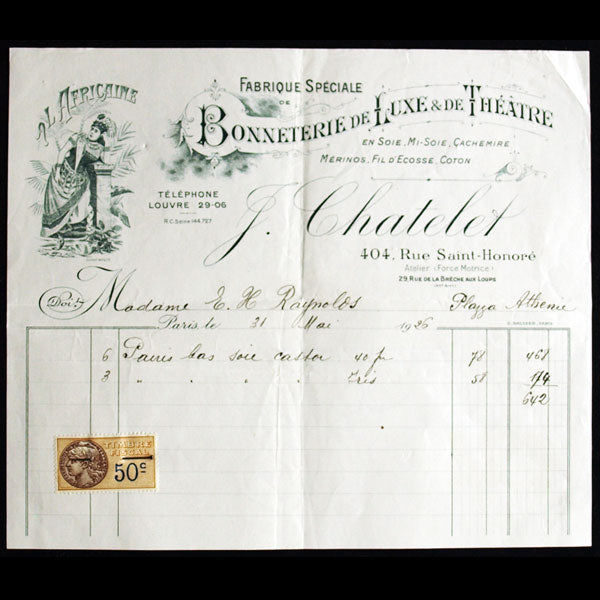 A L'AFRICAINE
FABRIQUE SPÉCIALE
DE
BONNETERIE DE LUXE & DE THÉÂTRE
EN SOIE, MI-SOIE, CACHEMIRE
MÉRINOS, FIL D'ECOSSE, COTON
TÉLÉPHONE
LOUVRE 29-06
R.C. Seine 144.727
J. Chatelet
404, Rue Saint-Honoré
Atelier (Force Motrice)
29, RUE DE LA BRÈCHE AUX LOUPS
Doit Madame E. H Raynolds Plazza Athenie
Paris, le 31 Mai 1926
6 Paires bas soie castor 40 fr 78 468
3 " " " Gris 58 174
642
TIMBRE
FISCAL
50 c